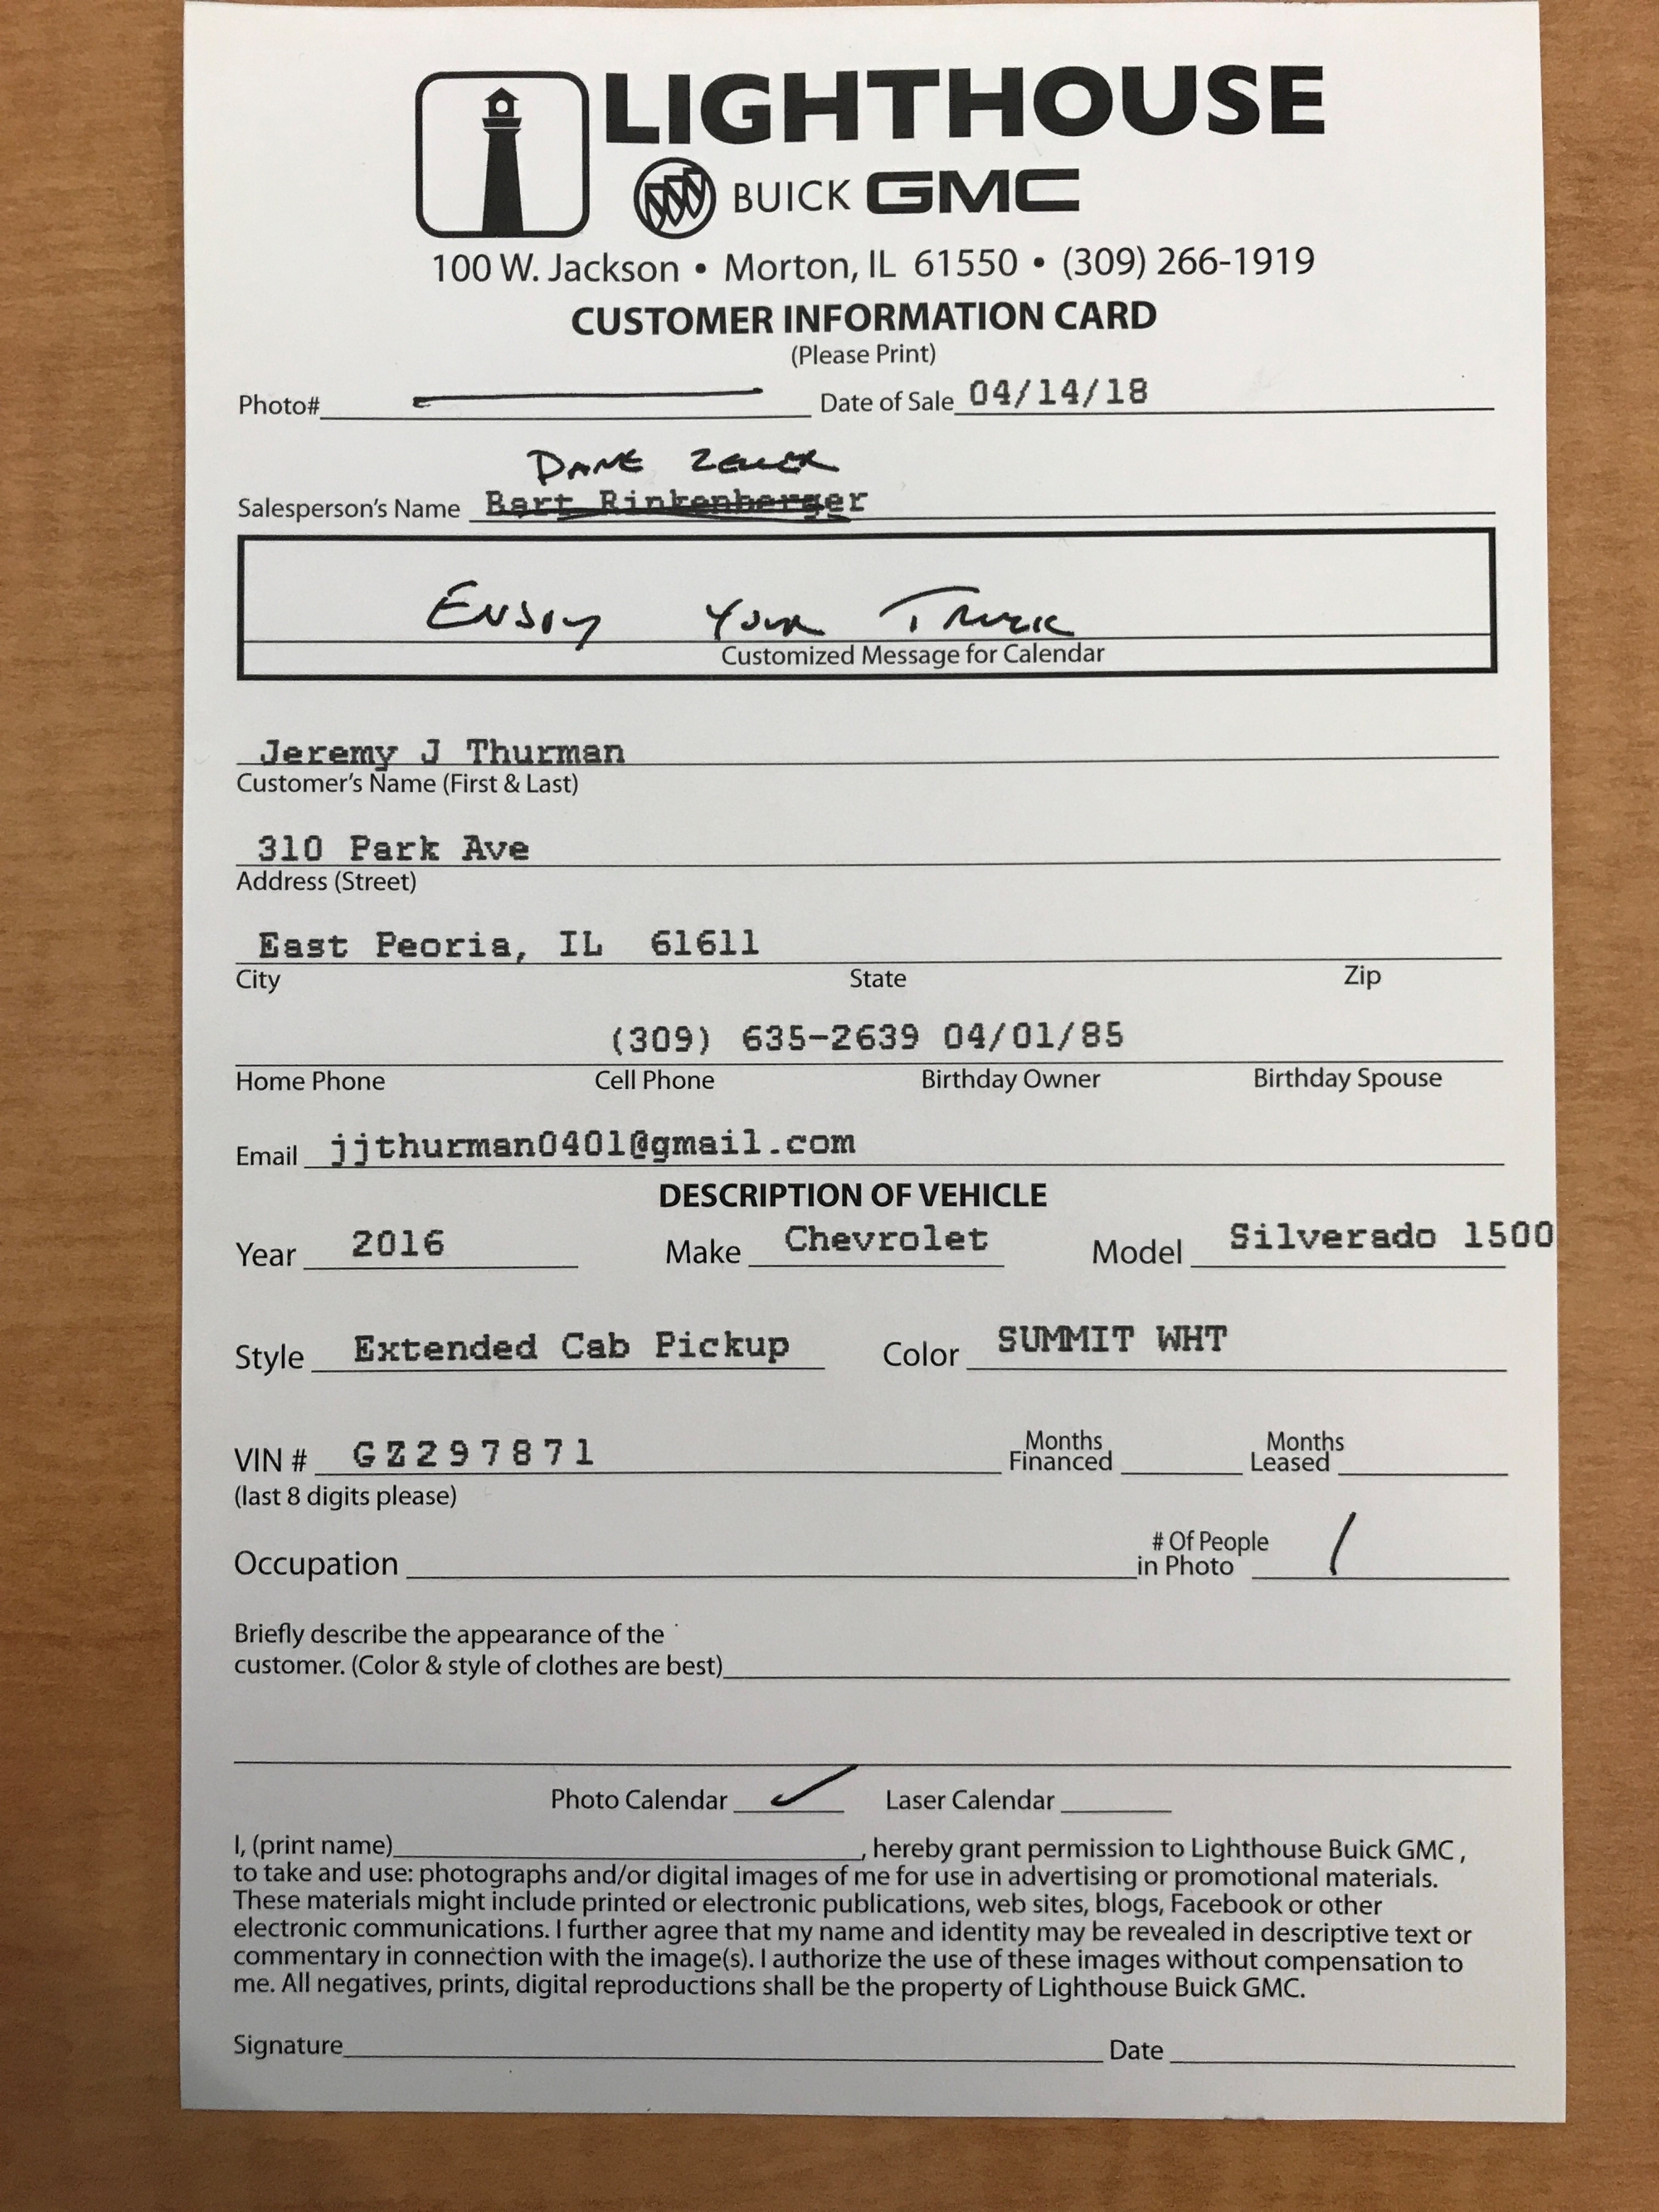 LIGHTHOUSE
BUICK GMC
100 W. Jackson • Morton, IL 61550 • (309) 266-1919
CUSTOMER INFORMATION CARD
(Please Print)
Photo# Date of Sale 04/14/18
DANE ZELLER
Salesperson's Name Bart Rinkenberger
ENJOY YOUR TRUCK
Customized Message for Calendar
Jeremy J Thurman
Customer's Name (First & Last)
310 Park Ave
Address (Street)
East Peoria, IL 61611
City State Zip
(309) 635-2639 04/01/85
Home Phone Cell Phone Birthday Owner Birthday Spouse
Email jjthurman0401@gmail.com
DESCRIPTION OF VEHICLE
Year 2016 Make Chevrolet Model Silverado 1500
Style Extended Cab Pickup Color SUMMIT WHT
VIN # GZ297871 Months Financed Months Leased
(last 8 digits please)
Occupation # Of People in Photo 1
Briefly describe the appearance of the
customer. (Color & style of clothes are best)
Photo Calendar ✓ Laser Calendar
I, (print name) , hereby grant permission to Lighthouse Buick GMC ,
to take and use: photographs and/or digital images of me for use in advertising or promotional materials.
These materials might include printed or electronic publications, web sites, blogs, Facebook or other
electronic communications. I further agree that my name and identity may be revealed in descriptive text or
commentary in connection with the image(s). I authorize the use of these images without compensation to
me. All negatives, prints, digital reproductions shall be the property of Lighthouse Buick GMC.
Signature Date